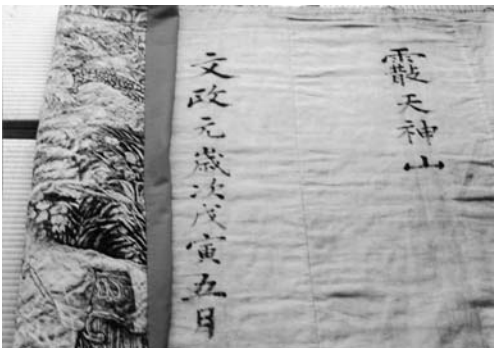 霰天神山
文政元歳次戊寅五月